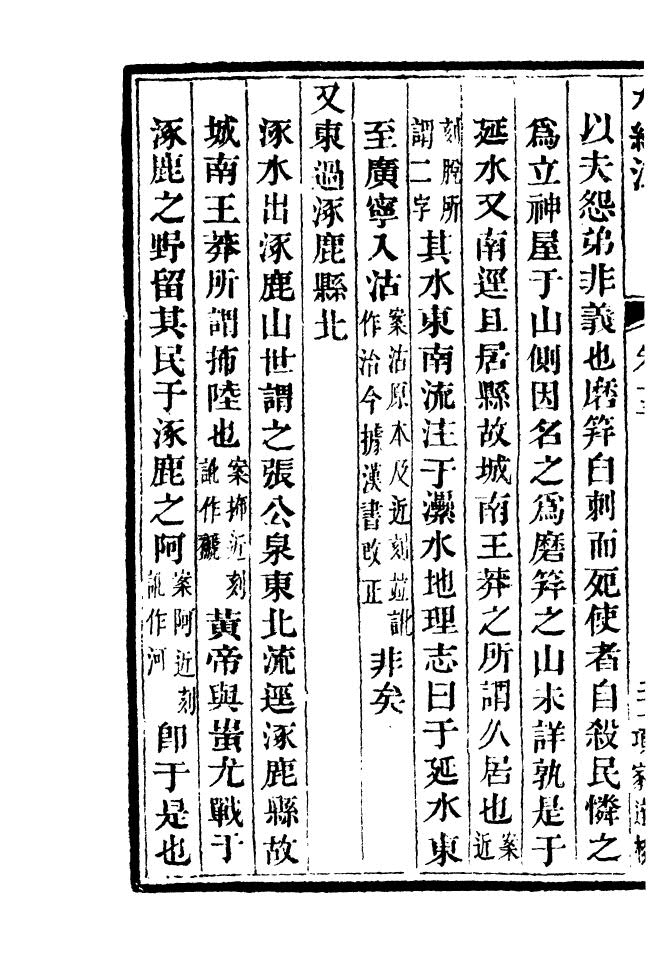 以夫怨弟非義也磨笄自刺而死使者自殺民憐之
爲立神屋于山側因名之爲磨笄之山未詳孰是于
延水又南逕且居縣故城南王莽之所謂久居也案近
刻脫所謂二字其水東南流注于㶟水地理志曰于延水東
至廣寧入沽案沽原本及近刻竝訛作治今據漢書改正非矣
又東過涿鹿縣北
涿水出涿鹿山世謂之張公泉東北流逕涿鹿縣故
城南王莽所謂抪陸也案抪近刻訛作𪎮黃帝與蚩尤戰于
涿鹿之野留其民于涿鹿之阿案阿近刻訛作河卽于是也